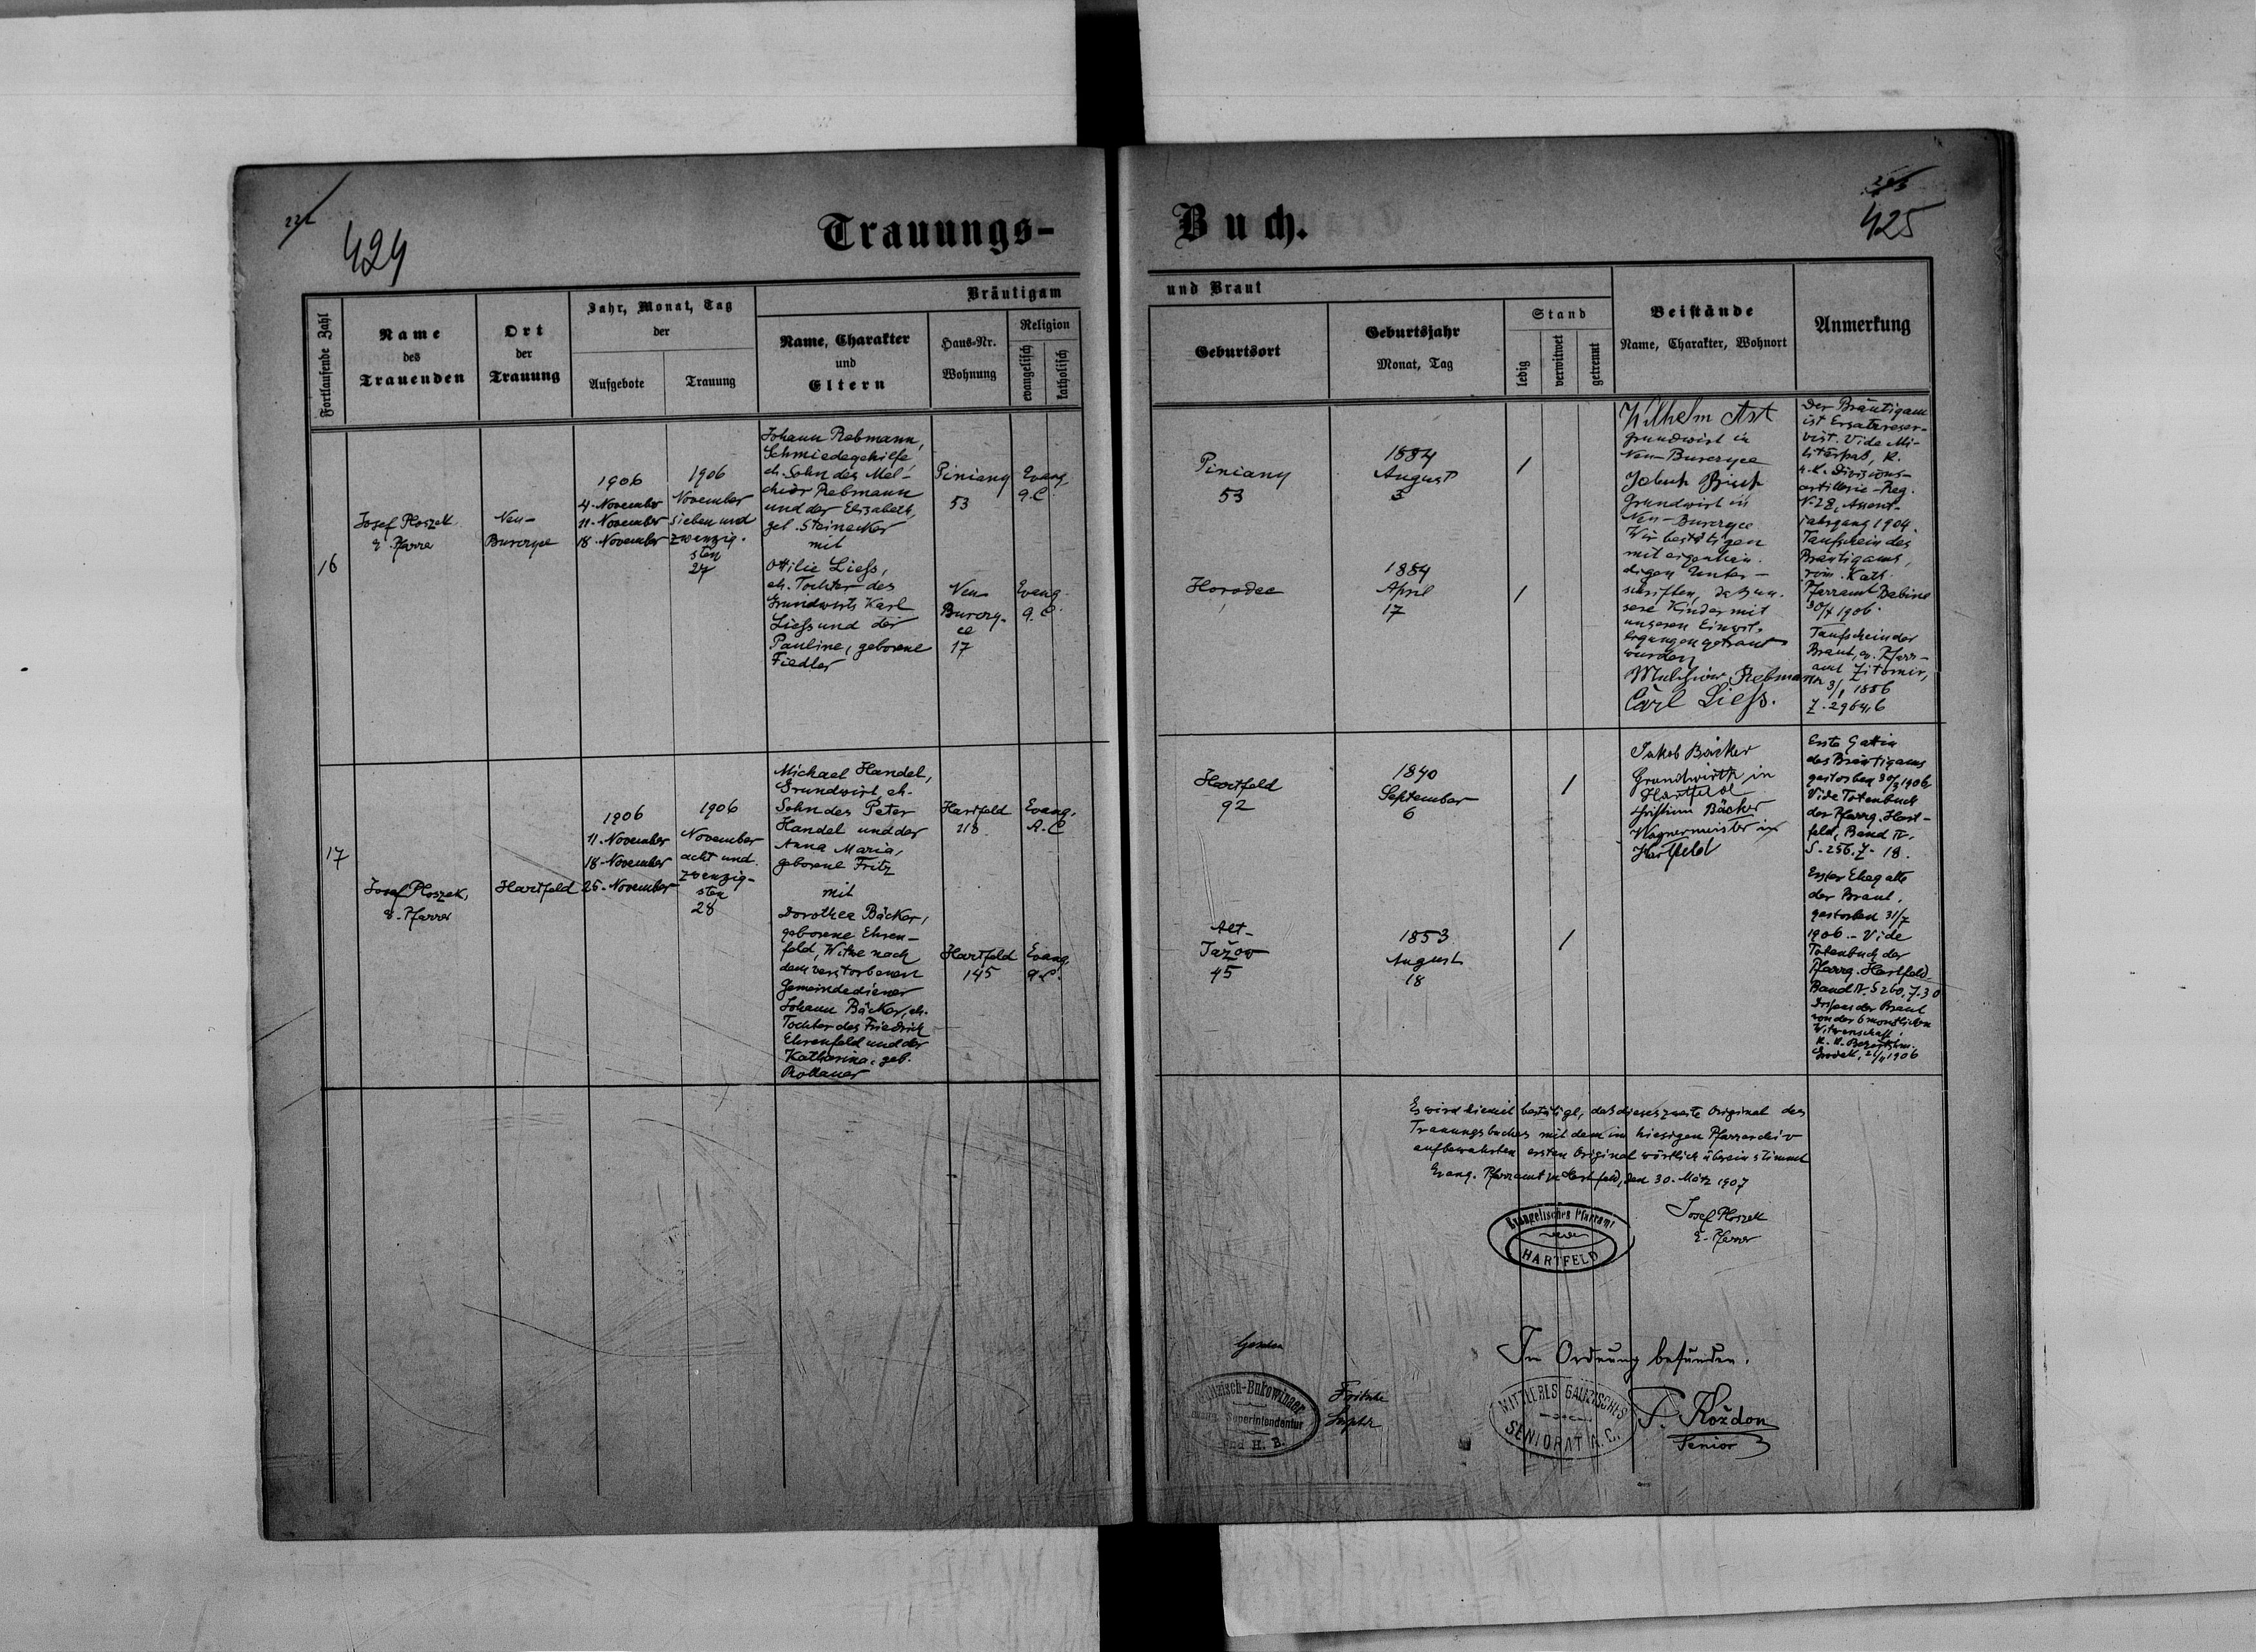 424
Trauungs-
Fortlaufende Zahl
Name
des
Trauenden
Ort
der
Trauung
Jahr, Monat, Tag
der
Aufgebote
Trauung
Bräutigam
Name, Charakter
und
Eltern
Haus-Nr.
Wohnung
Religion
evangelisch
katholisch
16
Josef Ploszek
E. Pfarre
Neu-
Burczyce
1906
4. November
11. November
18. November
1906
November
sieben und
zwenzig-
sten
27
Johann Rebmann,
Schmiedegehilfe,
eh. Sohn des Mel-
chior Rebmann
und der Elisabeth,
geb. Steinecker
mit
Ottilie Liess,
eh. Tochter des
Grundwirts Karl
Liess und der
Pauline, geborene
Fiedler
Piniany
53
Neu-
Burczy-
ce
17
Evang.
A.C.
Evang.
A.C.
17
Josef Ploszek,
E. Pfarrer
Hartfeld
1906
11. November
18. November
25. November
1906
November
acht und
zwenzig-
sten
28
Michael Handel,
Grundwirt, eh.
Sohn des Peter
Handel und der
Anna Maria,
geborene Fritz
mit
Dorothea Bäcker,
geborene Ehren-
feld, Witwe nach
dem verstorbenen
Gemeindediener
Johann Bäcker, eh.
Tochter des Friedrich
Ehrenfeld und der
Katharina, geb.
Hartfeld
218
Hartfeld
145
Evang.
A.C
Evang.
A.C.
Buch.
425
und Braut
Geburtsort
Geburtsjahr
Monat, Tag
Stand
ledig
verwitwet
getrennt
Beistände
Name, Charakter, Wohnort
Anmerkung
Piniany
53
1884
August
3
/
Horodec
1884
April
17
/
Wilhelm Ast
Grundwirt in
Neu-Burczyce
Jakob
Grundwirt in
Neu-Burczyce
Wir bestätigen
mit eigenhän-
digen Unter-
schriften, dass un-
sere Kinder mit
unseren Einwil-
ligungen getraut
wurden
Melchior Rebmann
Carl Liess.
Der Bräutigam
ist Ersatzreser-
vist. Vide Mi-
litärpaß, K.
u. K. Divisions-
artillerie-Reg.
N. 28, Assent-
jahrgang 1904.
Taufschein des
Bräutigams,
röm. Kath.
Pfarramt Babina
1906.
Taufschein der
Braut, ev. Pfarr-
amt Zitomir,
Hartfeld
92
1840
September
6
/
Alt-
Jažov
45
1853
August
18
/
Jakob Bäcker
Grundwirth in
Hartfeld
Christian Bäcker
Wagnermeister in
Hartfeld
Erste Gattin
des Bräutigams
gestorben 30/9 1906
Vide Totenbuch
der Pfarrg. Hart-
feld, Band IV.
S. 256. Z. 18.
Erster Ehegatte
der Braut,
gestorben 31/7
1906. – Vide
Totenbuch der
Pfarrg. Hartfeld
Band IV. S 260, Z. 30
Dispens der Braut
von der 6 monatlichen
Witwenschaft:
K. K. Bezirkshm.
Grodek, 1906
Es wird hiemit bestätigt, daß dieses zweite Original des
Trauungsbuches mit dem im hiesigen Pfarrarchiv
aufbewahrten ersten Original wörtlich übereinstimmt
Evang. Pfarramt in Hartfeld, den 30. März 1907
Evangelisches Pfarramt
HARTFELD
Josef Ploszek
E. Pfarrer
Gesehen
Galizisch-Bukowinaer
Superintendentur
und H. B.
Fritsche
Suptdt
In Ordnung befunden.
MITTLERES GALIZISCHES
SENIORAT A. C.
P. Koždon
Senior